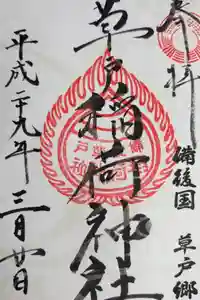 奉拝
備後国 草戸郷
草戸稲荷神社
平成二十九年三月廿日